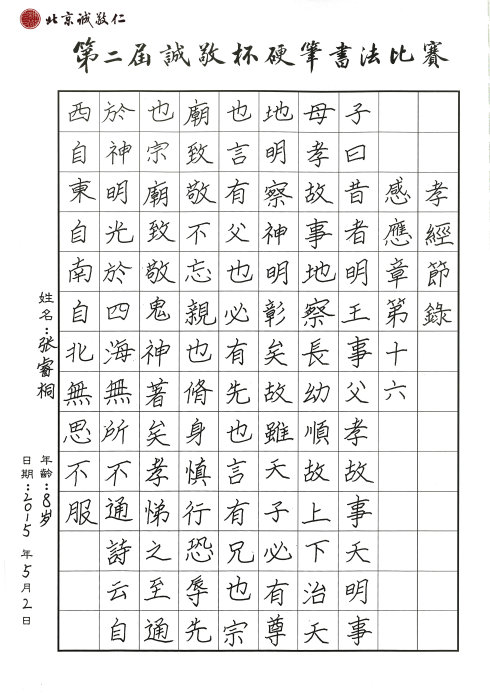 北京诚敬仁
第二届誠敬杯硬筆書法比賽
孝經節錄
感應章第十六
子曰昔者明王事父孝故事天明事
母孝故事地察長幼順故上下治天
地明察神明彰矣故雖天子必有尊
也言有父也必有先也言有兄也宗
廟致敬不忘親也脩身慎行恐辱先
也宗廟致敬鬼神著矣孝悌之至通
於神明光於四海無所不通詩云自
西自東自南自北無思不服
姓名：张睿桐
年齡：8岁
日期：2015年5月2日